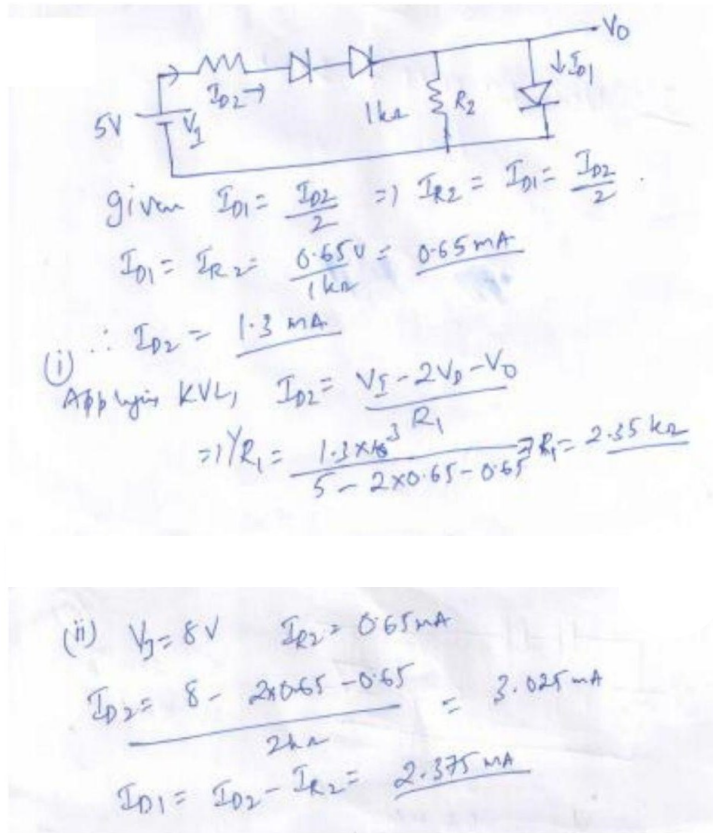 V0
↓ID1
ID2→
5V
VI
1kΩ
R2
given ID1 = ID2/2 ⇒ IR2 = ID1 = ID2/2.
ID1 = IR2 = 0.65V/1kΩ = 0.65mA
(i) ∴ ID2 = 1.3 mA
Applying KVL, ID2 = (VI - 2VD - V0)/R1
⇒ 1/R1 = (1.3×10^-3)/(5 - 2×0.65 - 0.65) ⇒ R1 = 2.35 kΩ
(ii) VI = 8V IR2 = 0.65mA
ID2 = (8 - 2×0.65 - 0.65)/2kΩ = 3.025mA
ID1 = ID2 - IR2 = 2.375 mA